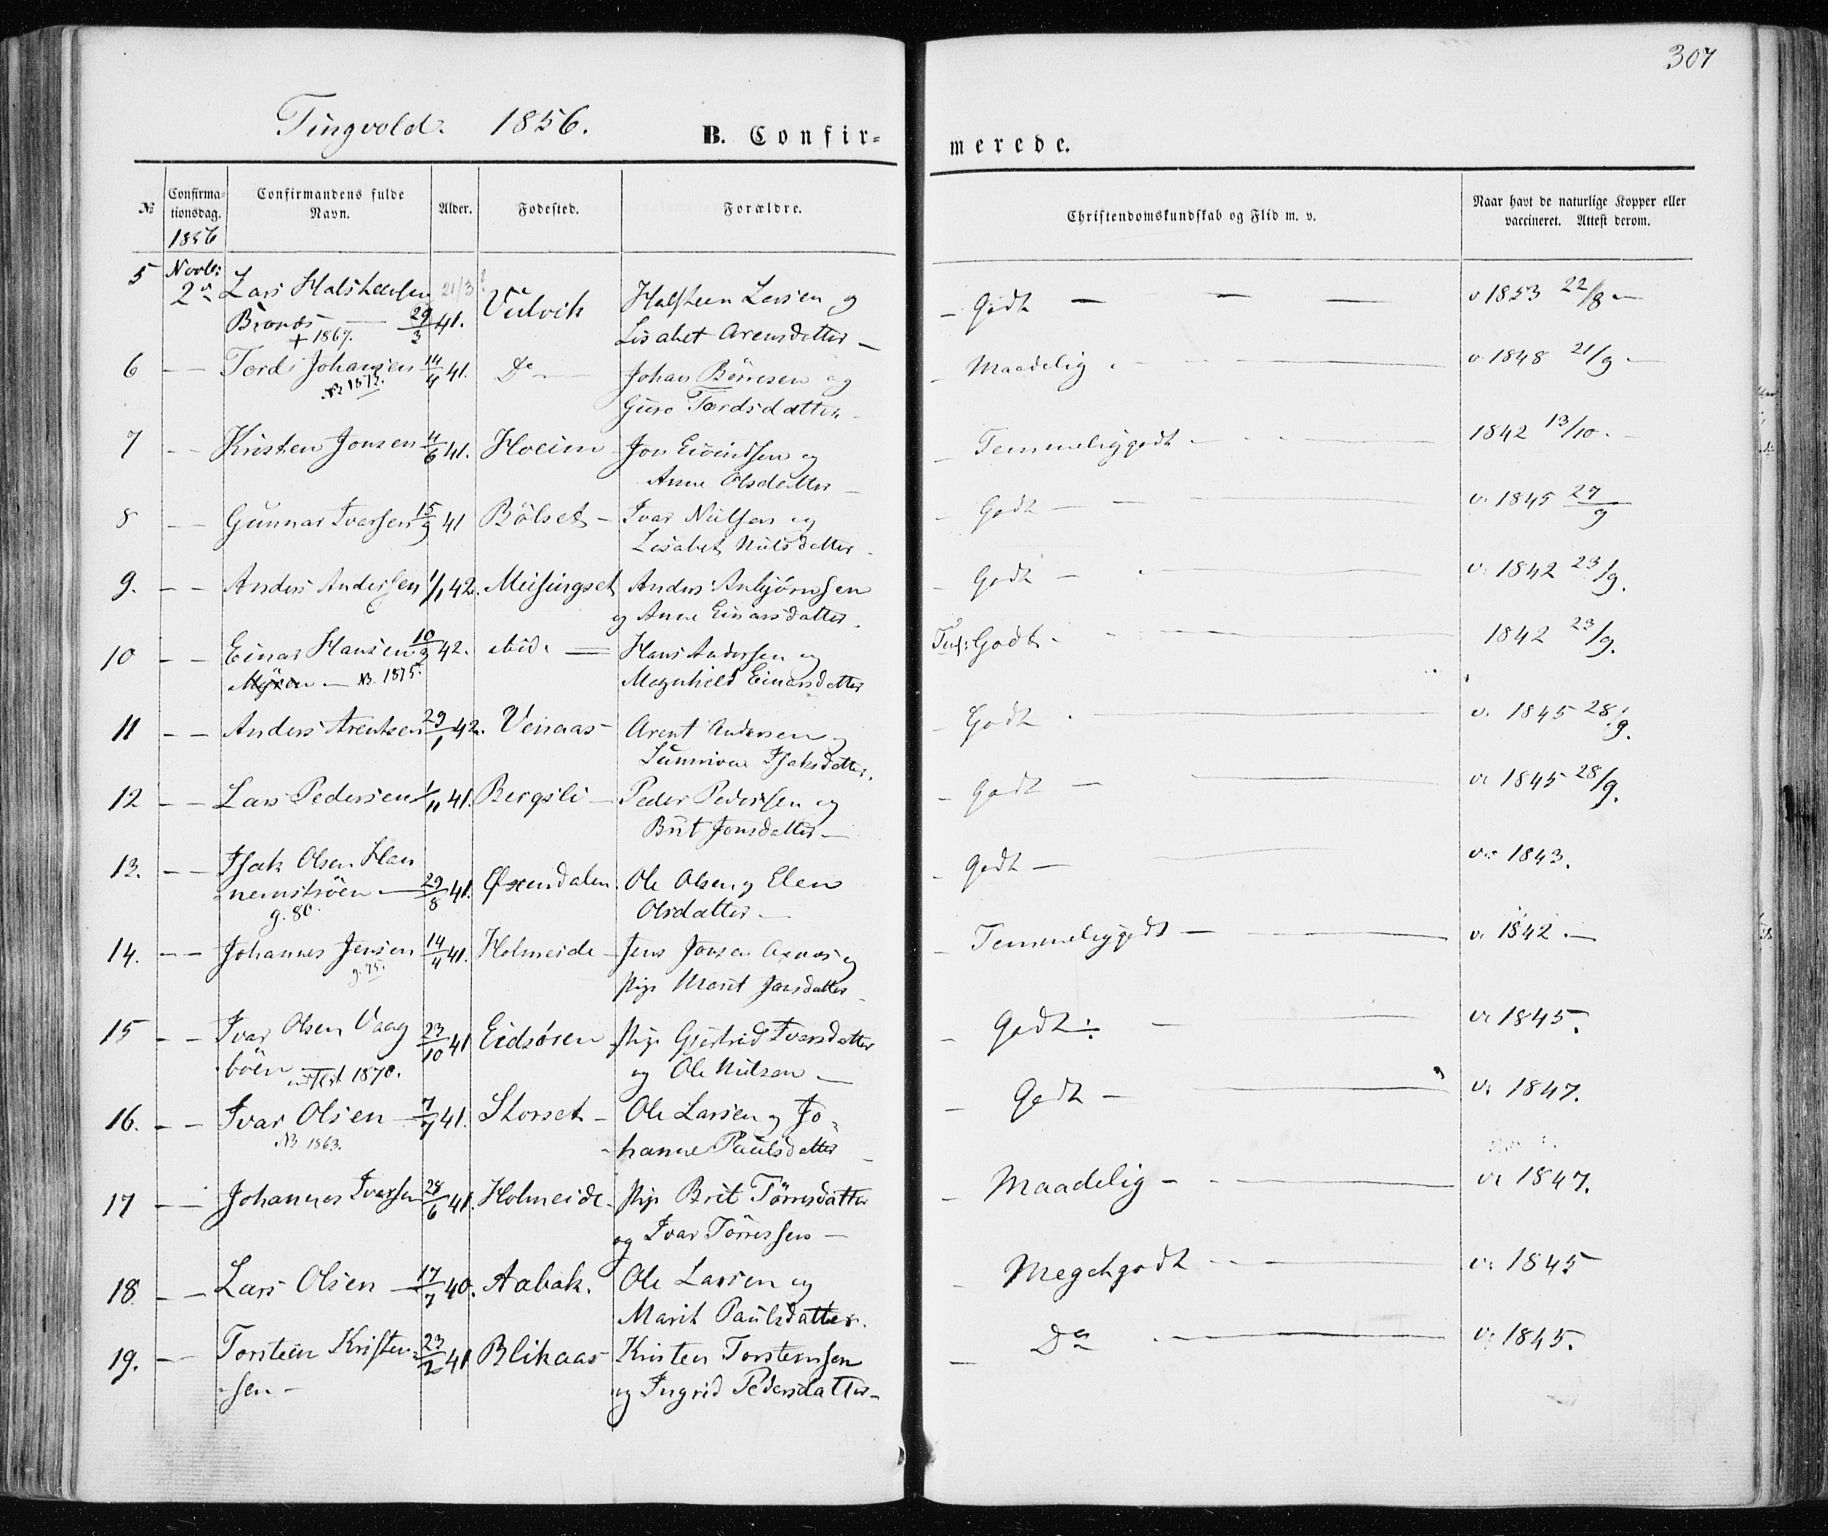 307
Tingvold. 1856.
B. Confirmerede.
№ Confirmationsdag. Confirmandens fulde Navn. Alder. Fødested. Forældre. Christendomskundskab og Flid m. v. Naar havt de naturlige Kopper eller vaccineret. Attest derom.
1856
5 Novbr: Lars Halsteensen 21/3 Halsteen Larsen og — Godt — v 1853 22/8 —
2 29/3 41. Lisabet Arensdatter —
+ 1867.
6 — — Tord Johansen 14/4 41. Do — Johan Börresen og — Maadelig v 1848 21/9 —
NB 1873. Guro Tordsdatter —
7 — — Kristen Jonsen 11/6 41. Hoeim — Jon Eivindsen og — Temmeliggodt 1842 13/10. —
Anne Olsdatter —
8 — — Gunnar Iversen 15/9 41 Bölset — Ivar Nilsen og — Godt — v. 1845 27/9
Lisabet Nilsdatter —
9. — — Anders Andersen 1/1 42. Meisingset Anders Anbjörnsen — Godt — v. 1842 23/9.
og Anne Einarsdatter.
10 — — Einar Hansen 10/2 42. ibid. Hans Andersen og Godt — 1842 23/9.
Myren — NB. 1875. Magnhild Einarsdatter
11 — — Anders Arentsen 29/1 42. Venaas — Arent Andersen og — Godt v. 1845 28/9.
Sunniva Isaksdatter.
12 — — Lars Pedersen 1/11 41. Bergsli — Peder Pedersen og — Godt — v: 1845 28/9.
Brit Jonsdatter —
13. — — Isak Olsen Han
nemströen — 29/8 41. Öxendalen. Ole Olsen og Elen — Godt — v: 1843.
g. 80. Olsdatter —
14. — — Johannes Jensen 14/4 41. Holmeide — Jens Jonsen og — Temmeliggodt — v. 1842. —
g. 75. Pige Marit Jonsdatter —
15 — — Ivar Olsen Vaag 23/10 41 Eidsören Pige Gjertrud Ivarsdatter — Godt: — v: 1845.
böen 1870. og Ole Nilsen —
16. — — Ivar Olsen — 7/7 41. Storset — Ole Larsen og Jo — Godt — v. 1847.
NB 1863. hanne Paulsdatter —
17 — — Johannes Ivarsen 28/6 41. Holmeide — Pige Brit Törresdatter — Maadelig — v: 1847.
og Ivar Törressen —
18. — — Lars Olsen — 17/7 40. Aabak. Ole Larsen og — Megetgodt v: 1845
Marit Paulsdatter.
19. — — Torstein Kristen 23/2 41 Blikaas Kristen Torstensen — Do v: 1845.
sen — og Ingrid Pedersdatter —